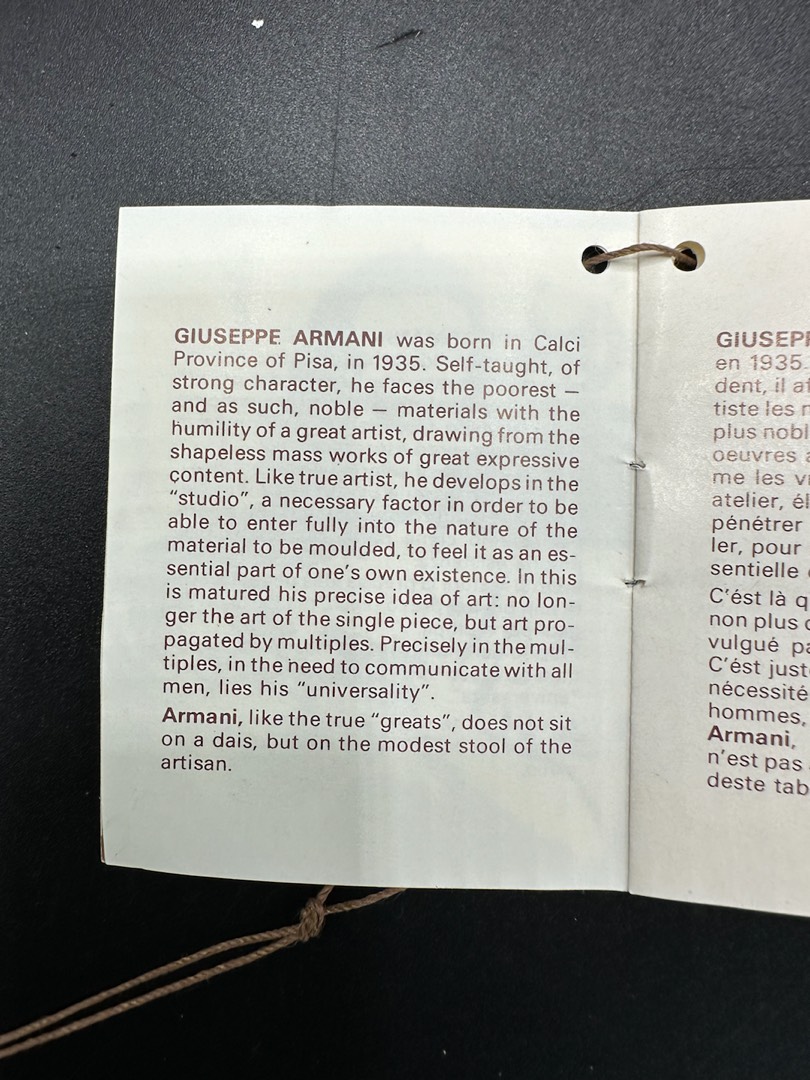 GIUSEPPE ARMANI was born in Calci
Province of Pisa, in 1935. Self-taught, of
strong character, he faces the poorest —
and as such, noble — materials with the
humility of a great artist, drawing from the
shapeless mass works of great expressive
content. Like true artist, he develops in the
“studio”, a necessary factor in order to be
able to enter fully into the nature of the
material to be moulded, to feel it as an es-
sential part of one's own existence. In this
is matured his precise idea of art: no lon-
ger the art of the single piece, but art pro-
pagated by multiples. Precisely in the mul-
tiples, in the need to communicate with all
men, lies his “universality”.
Armani, like the true “greats”, does not sit
on a dais, but on the modest stool of the
artisan.
en 1935.
dent, il
tiste les
plus
oeuvres
me les
atelier,
pénétrer
ler, pour
sentielle
C'ést là
non plus
vulgué
C'ést
nécessité
hommes,
Armani,
n'est pas
deste